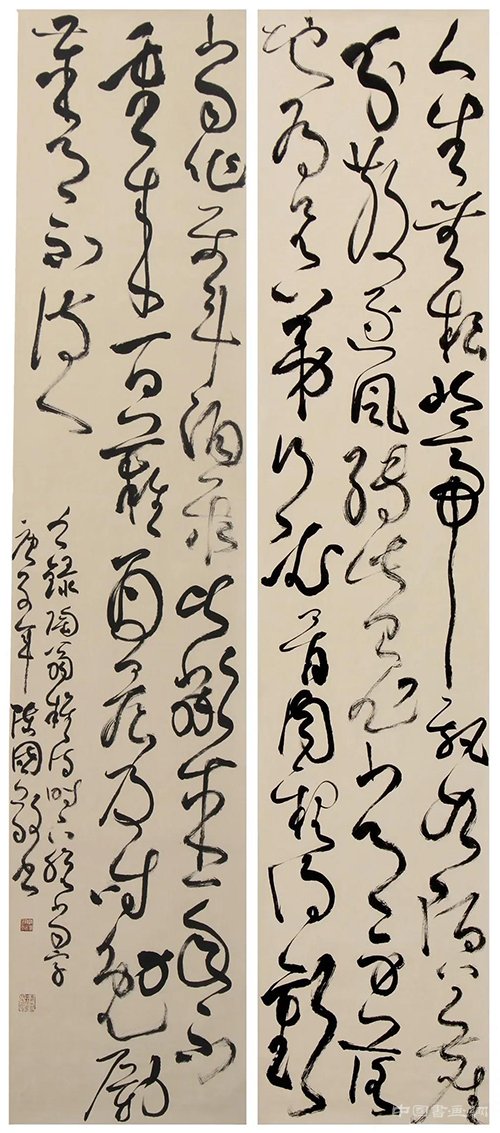 人生無根蒂飄如陌上塵
分散逐風轉此已非常身落
地為兄弟何必骨肉親得歡
當作樂斗酒聚比鄰盛年不
重來一日難再晨及時勉勵
歲月不待人
錄陶翁雜詩時下脱當字
庚子年 陳國 書